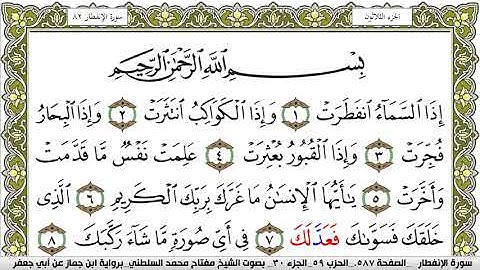 سورة الإنفطار ٨٢
الجزء الثلاثون
بِسْمِ ٱللَّهِ ٱلرَّحْمَٰنِ ٱلرَّحِيمِ
إِذَا ٱلسَّمَآءُ ٱنفَطَرَتْ ١ وَإِذَا ٱلْكَوَاكِبُ ٱنتَثَرَتْ ٢ وَإِذَا ٱلْبِحَارُ
فُجِّرَتْ ٣ وَإِذَا ٱلْقُبُورُ بُعْثِرَتْ ٤ عَلِمَتْ نَفْسٌ مَّا قَدَّمَتْ
وَأَخَّرَتْ ٥ يَٰٓأَيُّهَا ٱلْإِنسَٰنُ مَا غَرَّكَ بِرَبِّكَ ٱلْكَرِيمِ ٦ ٱلَّذِى
خَلَقَكَ فَسَوَّىٰكَ فَعَدَّلَكَ ٧ فِىٓ أَىِّ صُورَةٍ مَّا شَآءَ رَكَّبَكَ ٨
سورة الإنفطار _ الصفحة ٥٨٧. الحزب ٥٩. الجزء ٣٠_ بصوت الشيخ مفتاح محمد السلطني_ برواية ابن جماز عن أبي جعفر